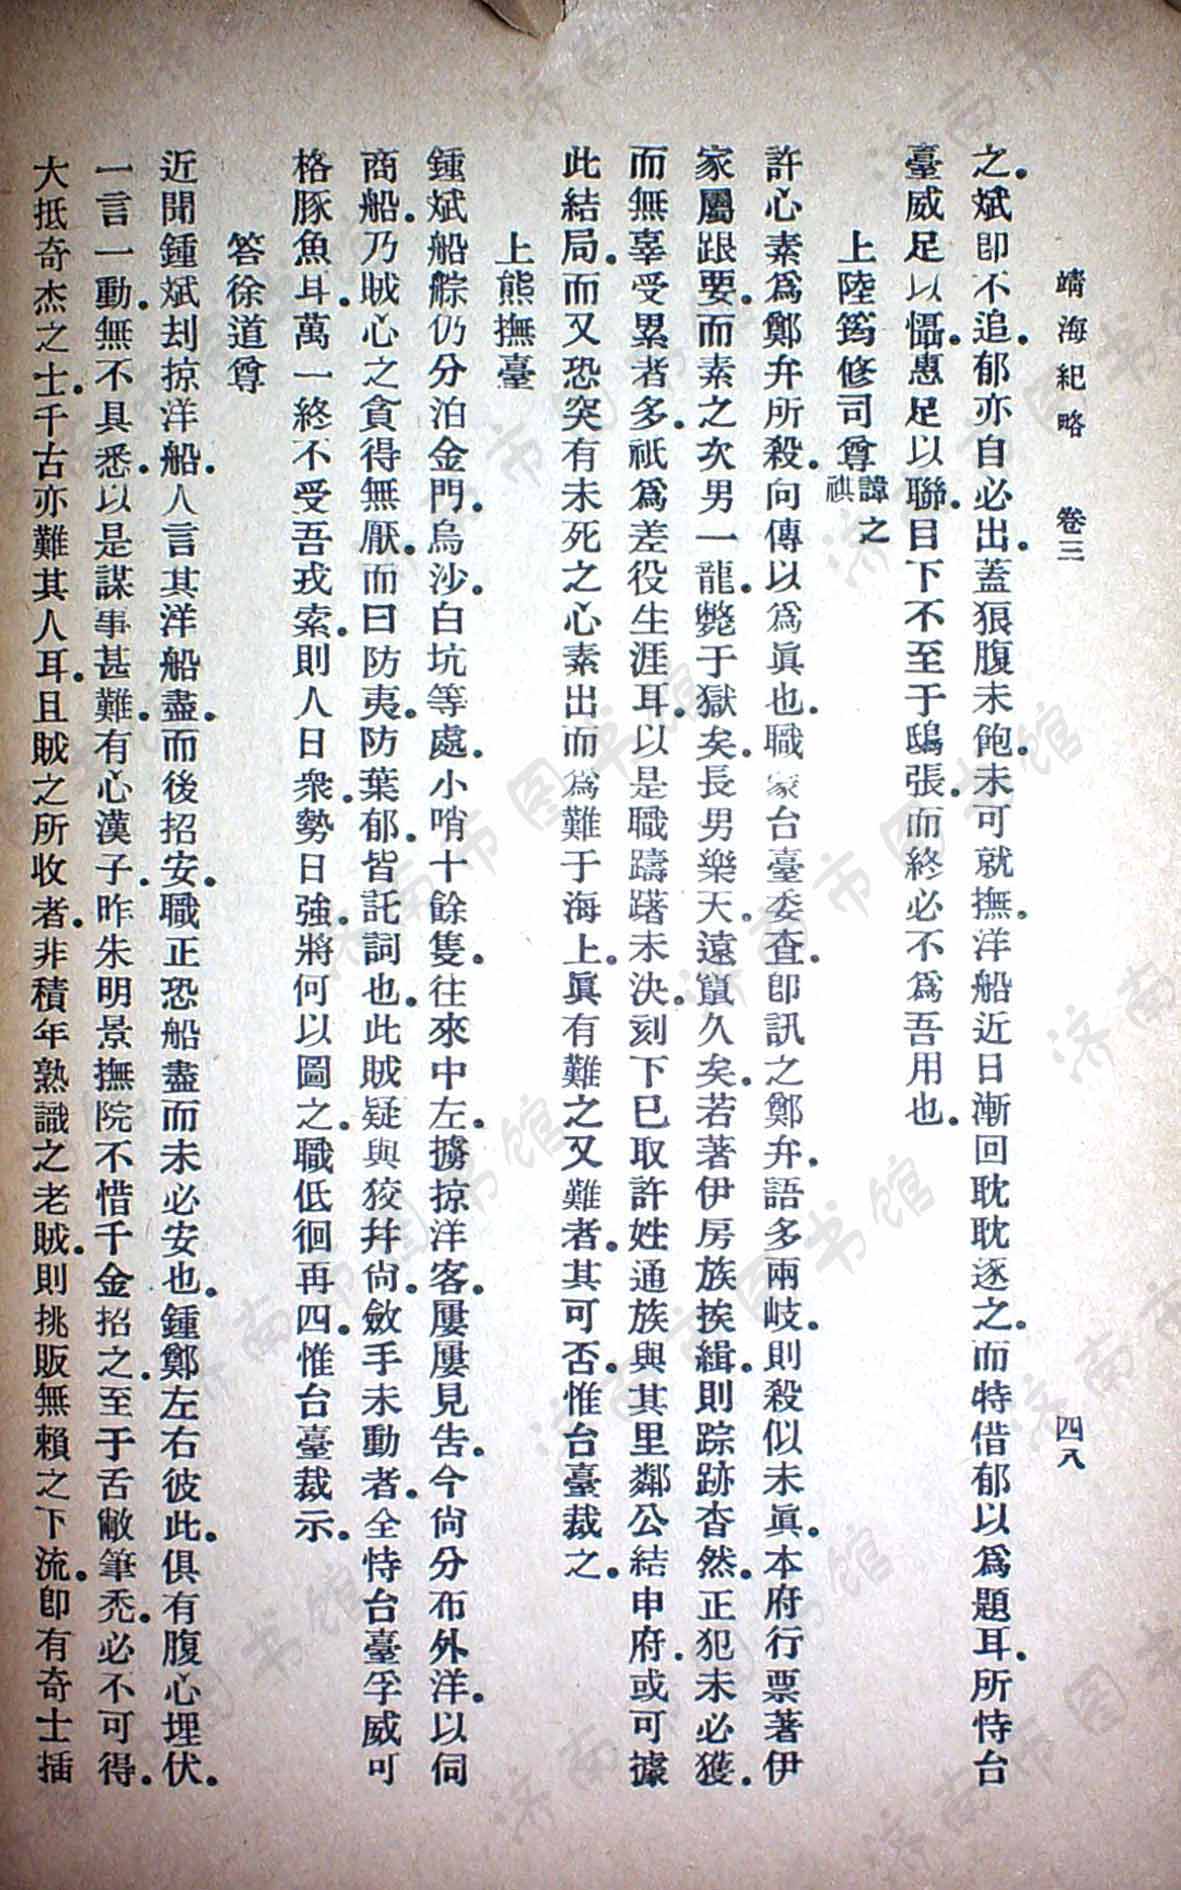 靖海紀略　卷三　四八
之。斌卽不追。郁亦自必出。蓋狼腹未飽。未可就撫。洋船近日漸回耽耽逐之。而特借郁以爲題耳。所恃台
臺威足以懾。惠足以聯。目下不至于鴟張。而終必不爲吾用也。
上陸筠修司尊諱之祺
許心素爲鄭弁所殺。向傳以爲眞也。職家台臺委查。卽訊之鄭弁。語多兩岐。則殺似未眞。本府行票著伊
家屬跟要。而素之次男一龍。斃于獄矣。長男樂天。遠竄久矣。若著伊房族挨緝。則踪跡杳然。正犯未必獲。
而無辜受累者多。祇爲差役生涯耳。以是職躊躇未決。刻下已取許姓通族與其里鄰公結申府。或可據
此結局。而又恐突有未死之心素出而爲難于海上。眞有難之又難者。其可否。惟台臺裁之。
上熊撫臺
鍾斌船艅仍分泊金門。烏沙。白坑等處。小哨十餘隻。往來中左。擄掠洋客。屢屢見吿。今尙分布外洋。以伺
商船。乃賊心之貪得無厭。而曰防夷。防葉郁。皆託詞也。此賊疑與狡幷尙。斂手未動者。全恃台臺孚威可
格豚魚耳。萬一終不受吾戎索。則人日衆。勢日強。將何以圖之。職低徊再四。惟台臺裁示。
答徐道尊
近聞鍾斌刦掠洋船。人言其洋船盡。而後招安。職正恐船盡而未必安也。鍾鄭左右彼此。俱有腹心埋伏。
一言一動。無不具悉。以是謀事甚難。有心漢子。昨朱明景撫院不惜千金招之。至于舌敝筆禿。必不可得。
大抵奇杰之士。千古亦難其人耳。且賊之所收者。非積年熟識之老賊。則挑販無賴之下流。卽有奇士插